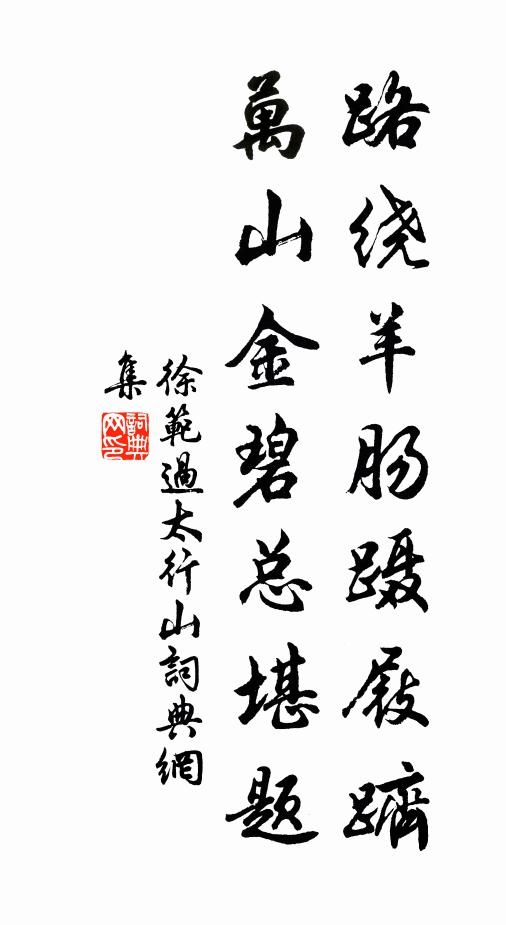 路绕羊肠蹑屐跻
萬山金碧总堪题
徐範過太行山詞典網
集
詞典网印